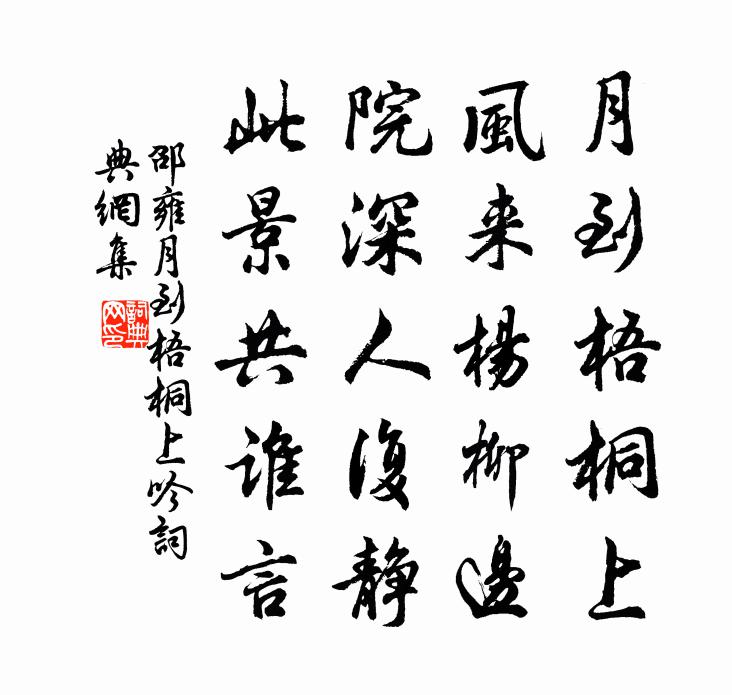 月到梧桐上
風来楊柳邊
院深人復静
此景共谁言
邵雍月到梧桐上吟詞
典網集
詞典
网印